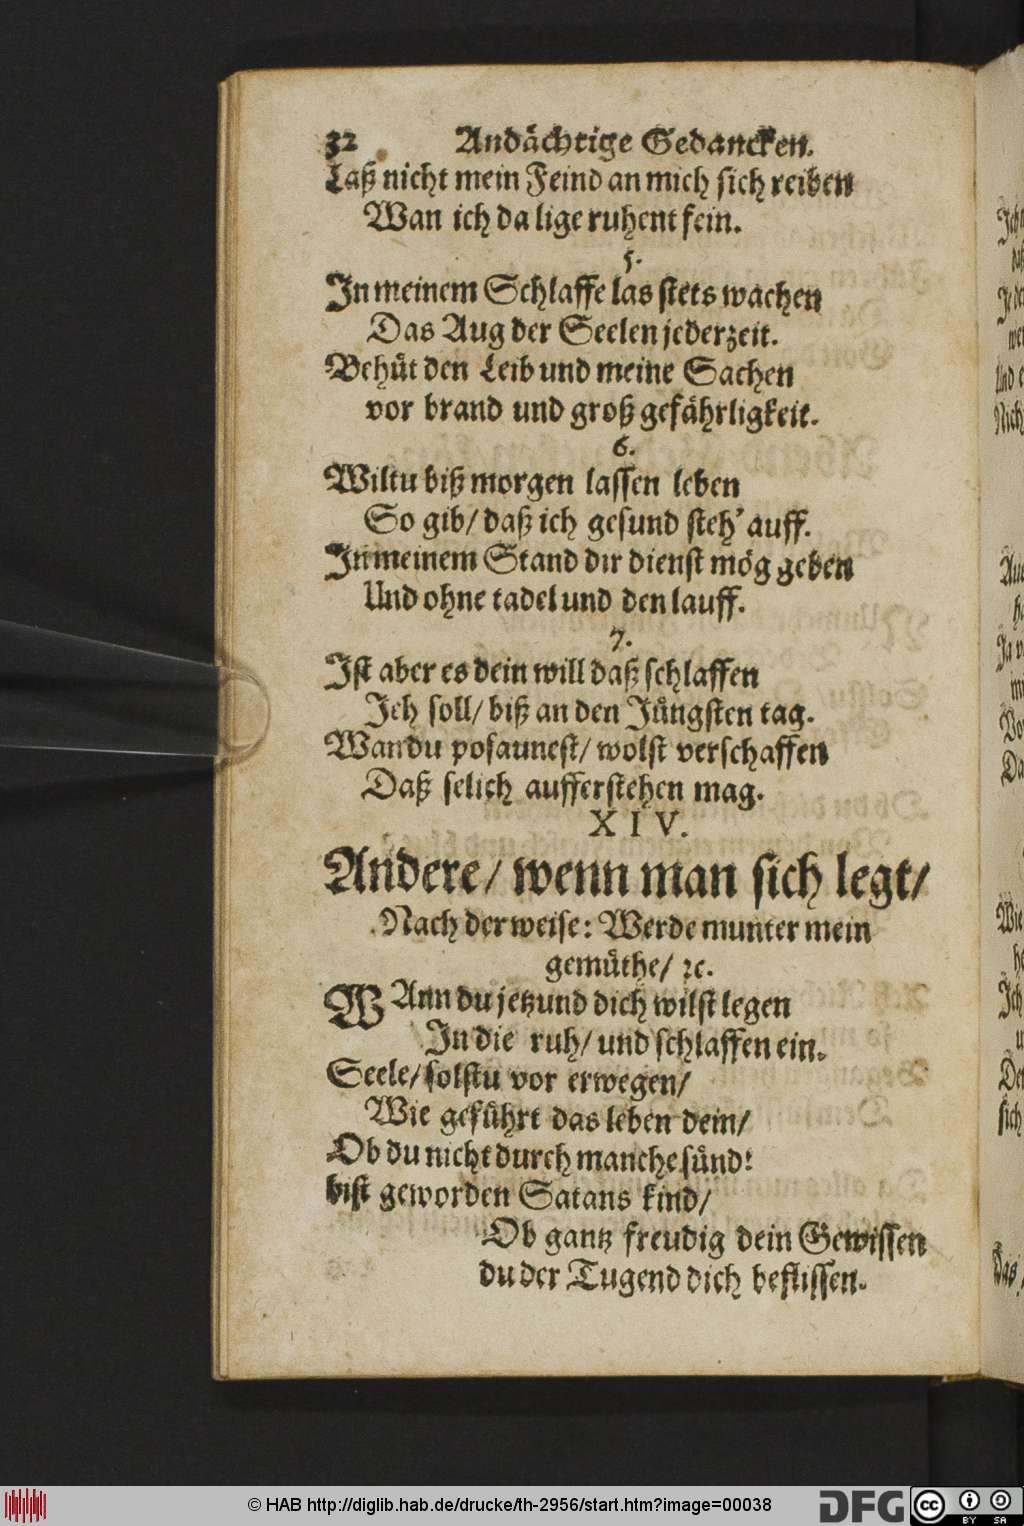 32 Andächtige Gedancken.
Laß nicht mein Feind an mich sich reiben
Wan ich da lige ruhent fein.
5.
In meinem Schlaffe las stets wachen
Das Aug der Seelen jederzeit.
Behüt den Leib und meine Sachen
vor brand und groß gefährligkeit.
6.
Wiltu biß morgen lassen leben
So gib/ daß ich gesund steh' auff.
In meinem Stand dir dienst mög geben
Und ohne tadel und den lauff.
7.
Ist aber es dein will daß schlaffen
Ich soll/ biß an den Jüngsten tag.
Wan du posaunest/ wolst verschaffen
Daß selich aufferstehen mag.
XIV.
Andere/ wenn man sich legt/
Nach der weise: Werde munter mein
gemüthe/ ꝛc.
WAnn du jetzund dich wilst legen
In die ruh/ und schlaffen ein.
Seele/ solstu vor erwegen/
Wie geführt das leben dein/
Ob du nicht durch manche sünd!
bist geworden Satans kind/
Ob gantz freudig dein Gewissen
du der Tugend dich beflissen.
© HAB http://diglib.hab.de/drucke/th-2956/start.htm?image=00038
DFG
cc BY SA